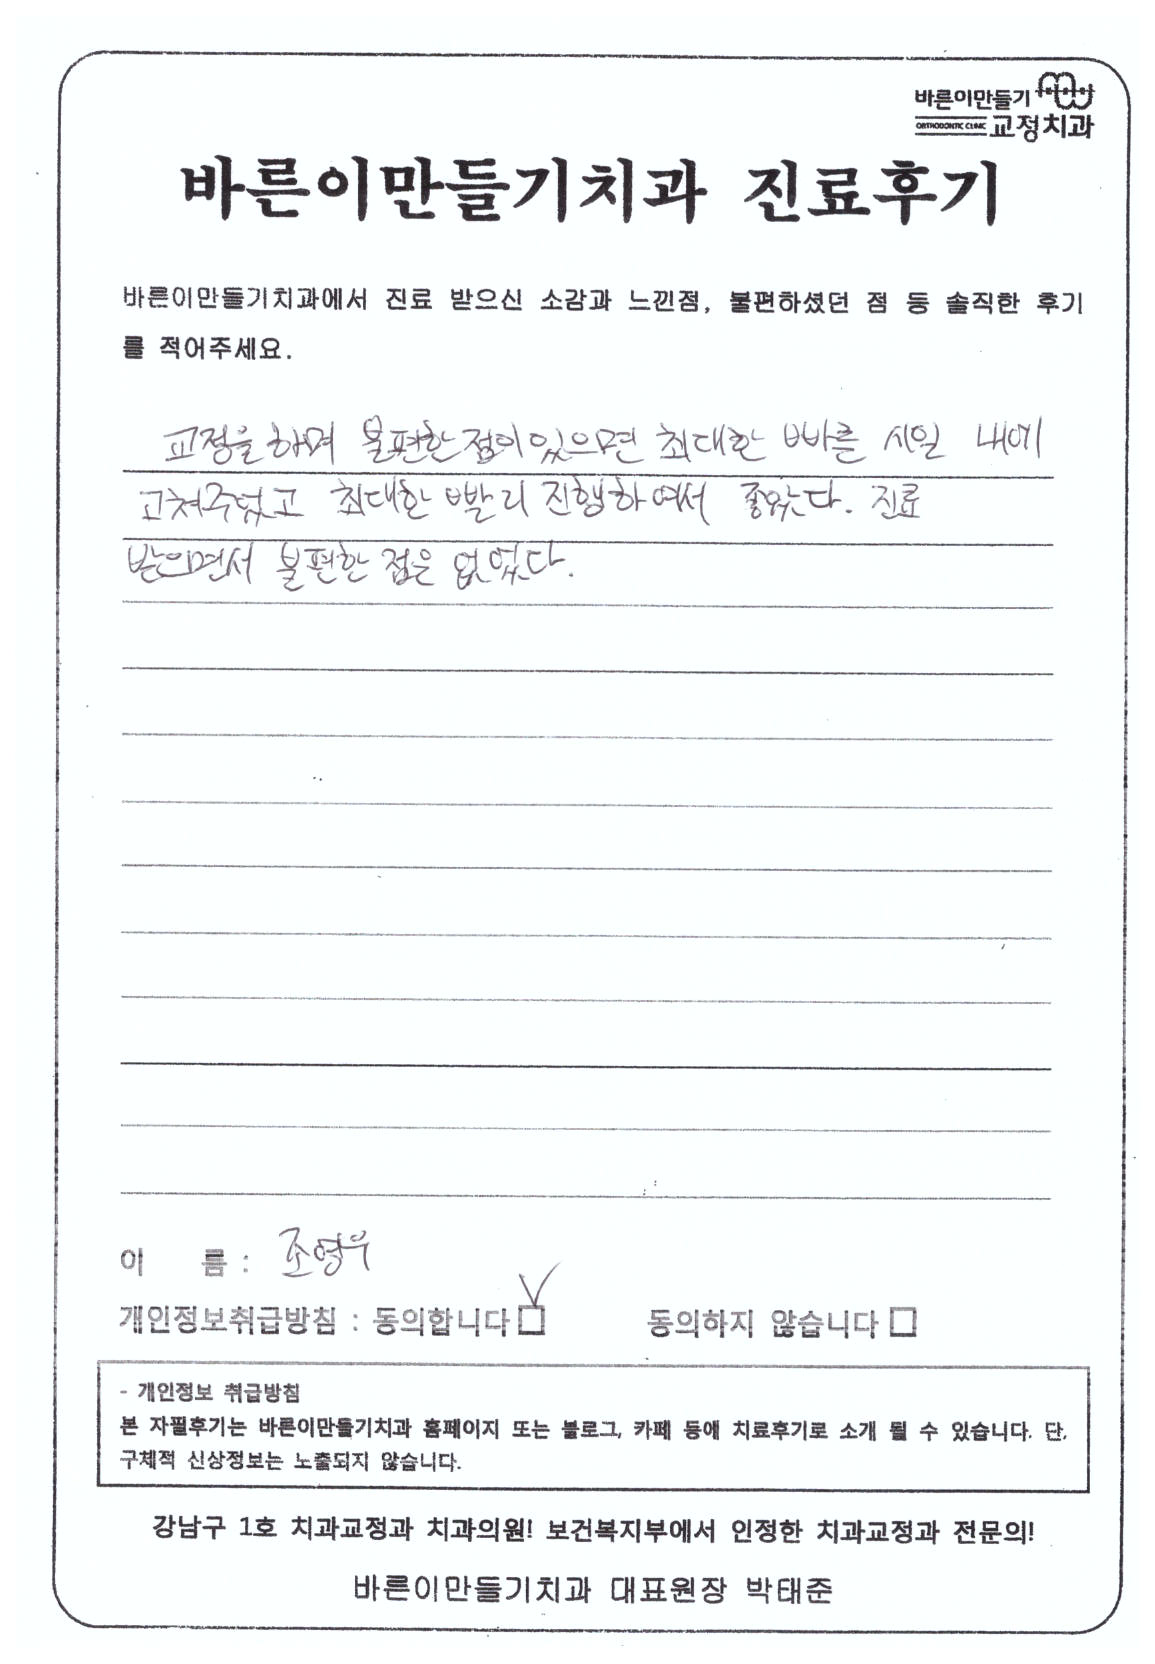 바른이만들기
ORTHODONTIC CLINIC 교정치과
바른이만들기치과 진료후기
바른이만들기치과에서 진료 받으신 소감과 느낀점, 불편하셨던 점 등 솔직한 후기
를 적어주세요.
교정을 하며 불편한 점이 있으면 최대한 빠른 시일 내에
고쳐주셨고 최대한 빨리 진행하여서 좋았다. 진료
받으면서 불편한 점은 없었다.
이 름 : 조영우
개인정보취급방침 : 동의합니다 동의하지 않습니다
- 개인정보 취급방침
본 자필후기는 바른이만들기치과 홈페이지 또는 블로그, 카페 등에 치료후기로 소개 될 수 있습니다. 단,
구체적 신상정보는 노출되지 않습니다.
강남구 1호 치과교정과 치과의원! 보건복지부에서 인정한 치과교정과 전문의!
바른이만들기치과 대표원장 박태준